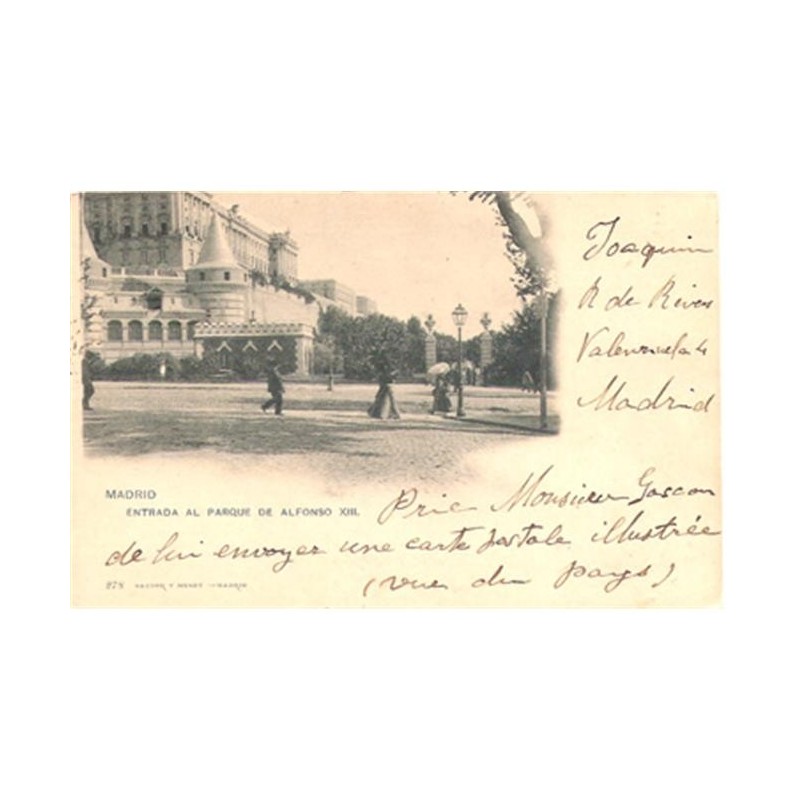 Joaquin
R de Rivera
Valenzuela 4
Madrid
MADRID
ENTRADA AL PARQUE DE ALFONSO XIII.
Prie Monsieur Gascon
de lui envoyer une carte postale illustrée
(vue du pays)
278 HAUSER Y MENET - MADRID